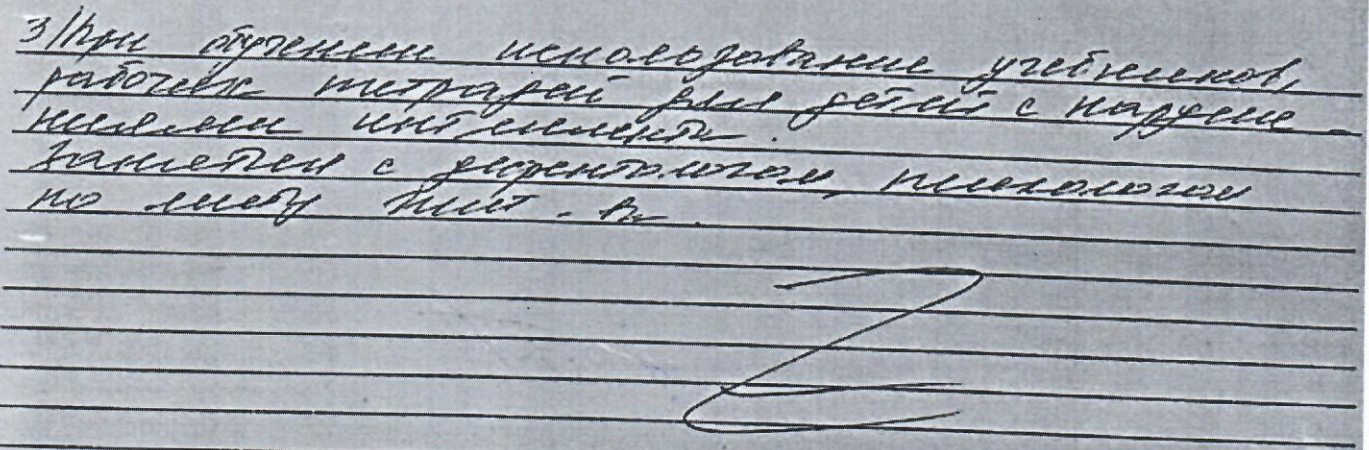 3/ При обучении использование учебников,
рабочих тетрадей для детей с наруше-
ниями интеллекта.
Занятия с дефектологом, психологом
по